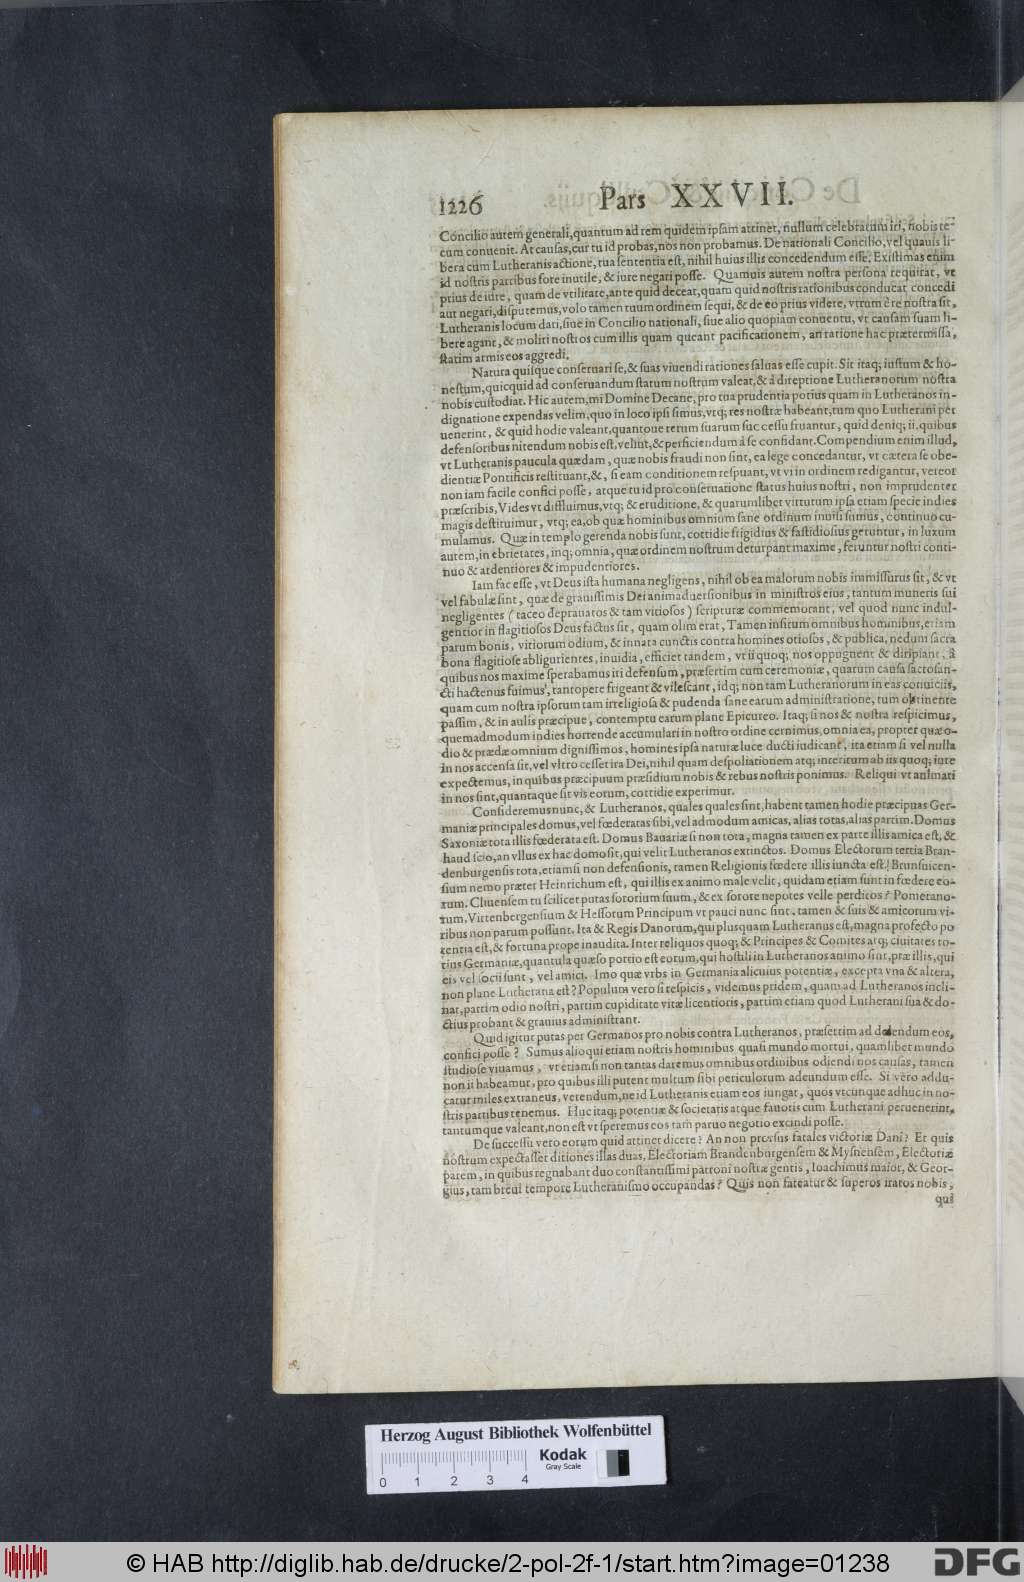 1226 Pars XXVII.
Concilio autem generali, quantum ad rem quidem ipsam attinet, nullum celebratum iri, nobis te-
cum conuenit. At causas, cur tu id probas, nos non probamus. De nationali Concilio, vel quauis li-
bera cum Lutheranis actione, tua sententia est, nihil huius illis concedendum esse. Existimas enim
id nostris partibus fore inutile, & iure negari posse. Quamuis autem nostra persona requirat, vt
prius de iure, quam de vtilitate, ante quid deceat, quam quid nostris rationibus conducat concedi
aut negari, disputemus, volo tamen tuum ordinem sequi, & de eo prius videre, vtrum è re nostra sit,
Lutheranis locum dari, siue in Concilio nationali, siue alio quopiam conuentu, vt causam suam li-
bere agant, & moliri nostros cum illis quam queant pacificationem, an ratione hac prætermissa,
statim armis eos aggredi.
Natura quisque conseruari se, & suas viuendi rationes saluas esse cupit. Sit itaq; iustum & ho-
nestum, quicquid ad conseruandum statum nostrum valeat, & à direptione Lutheranorum nostra
nobis custodiat. Hic autem, mi Domine Decane, pro tua prudentia potius quam in Lutheranos in-
dignatione expendas velim, quo in loco ipsi simus, vtq; res nostræ habeant, tum quo Lutherani per
uenerint, & quid hodie valeant, quantoue rerum suarum successu fruantur, quid deniq; ii, quibus
defensoribus nitendum nobis est, velint, & perficiendum à se confidant. Compendium enim illud,
vt Lutheranis paucula quædam, quæ nobis fraudi non sint, ea lege concedantur, vt cætera se obe-
dientiæ Pontificis restituant, &, si eam conditionem respuant, vt vi in ordinem redigantur, vereor
non iam facile confici posse, atque tu id pro conseruatione status huius nostri, non imprudenter
præscribis, Vides vt diffluimus, vtq; & eruditione, & quarumlibet virtutum ipsa etiam specie indies
magis destituimur, vtq; ea, ob quæ hominibus omnium sane ordinum inuisi sumus, continuo cu-
mulamus. Quæ in templo gerenda nobis sunt, cottidie frigidius & fastidiosius geruntur, in luxum
autem, in ebrietates, inq; omnia, quæ ordinem nostrum deturpant maxime, feruntur nostri conti-
nuo & ardentiores & impudentiores.
Iam fac esse, vt Deus ista humana negligens, nihil ob ea malorum nobis immissurus sit, & vt
vel fabulæ sint, quæ de grauissimis Dei animaduersionibus in ministros eius, tantum muneris sui
negligentes (taceo deprauatos & tam vitiosos) scripturæ commemorant, vel quod nunc indul-
gentior in flagitiosos Deus factus sit, quam olim erat, Tamen insitum omnibus hominibus, etiam
parum bonis, vitiorum odium, & innata cunctis contra homines otiosos, & publica, nedum sacra
bona flagitiose abligurientes, inuidia, efficiet tandem, vt ii quoq; nos oppugnent & diripiant, à
quibus nos maxime sperabamus iri defensum, præsertim cum ceremoniæ, quarum causa sacrosan-
cti hactenus fuimus, tantopere frigeant & vilescant, idq; non tam Lutheranorum in eas conuiciis,
quam cum nostra ipsorum tam irreligiosa & pudenda sane earum administratione, tum obtinente
passim, & in aulis præcipue, contemptu earum plane Epicureo. Itaq; si nos & nostra respicimus,
quemadmodum indies horrende accumulari in nostro ordine cernimus, omnia ea, propter quæ o-
dio & præda omnium dignissimos, homines ipsa naturæ luce ducti iudicant, ita etiam si vel nulla
in nos accensa sit, vel vltro cesset ira Dei, nihil quam despoliationem atq; interitum ab iis quoq; iure
expectemus, in quibus præcipuum præsidium nobis & rebus nostris ponimus. Reliqui vt animati
in nos sint, quantaque sit vis eorum, cottidie experimur.
Consideremus nunc, & Lutheranos, quales quales sint, habent tamen hodie præcipuas Ger-
maniæ principales domus, vel fœderatas sibi, vel admodum amicas, alias totas, alias partim. Domus
Saxoniæ tota illis fœderata est. Domus Bauariæ si non tota, magna tamen ex parte illis amica est, &
haud scio, an vllus ex hac domo sit, qui velit Lutheranos extinctos. Domus Electorum tertia Bran-
denburgensis tota, etiamsi non defensionis, tamen Religionis fœdere illis iuncta est. Brunsuicen-
sium nemo præter Heinrichum est, qui illis ex animo male velit, quidam etiam sunt in fœdere eo-
rum. Cliuensem tu scilicet putas sororium suum, & ex sorore nepotes velle perditos? Pomerano-
rum, Virtenbergensium & Hessorum Principum vt pauci nunc sint, tamen & suis & amicorum vi-
ribus non parum possunt. Ita & Regis Danorum, qui plusquam Lutheranus est, magna profecto po
tentia est, & fortuna prope inaudita. Inter reliquos quoq; & Principes & Comites atq; ciuitates to-
tius Germaniæ, quantula quæso portio est eorum, qui hostili in Lutheranos animo sint, præ illis, qui
eis vel socii sunt, vel amici. Imo quæ vrbs in Germania alicuius potentiæ, excepta vna & altera,
non plane Lutherana est? Populum vero si respicis, videmus pridem, quam ad Lutheranos incli-
nat, partim odio nostri, partim cupiditate vitæ licentioris, partim etiam quod Lutherani sua & do-
ctius probant & grauius administrant.
Quid igitur putas per Germanos pro nobis contra Lutheranos, præsertim ad delendum eos,
confici posse? Sumus alioqui etiam nostris hominibus quasi mundo mortui, quamlibet mundo
studiose viuamus, vt etiamsi non tantas daremus omnibus ordinibus odiendi nos causas, tamen
non ii habeamur, pro quibus illi putent multum sibi periculorum adeundum esse. Si vero addu-
catur miles extraneus, verendum, ne id Lutheranis etiam eos iungat, quos vtcunque adhuc in no-
stris partibus tenemus. Huc itaq; potentiæ & societatis atque fauoris cum Lutherani peruenerint,
tantumque valeant, non est vt speremus eos tam paruo negotio excindi posse.
De successu vero eorum quid attinet dicere? An non prorsus fatales victoriæ Dani? Et quis
nostrum expectasset ditiones illas duas, Electoriam Brandenburgensem & Mysnensem, Electoriæ
parem, in quibus regnabant duo constantissimi patroni nostræ gentis, Ioachimus maior, & Geor-
gius, tam breui tempore Lutheranismo occupandas? Quis non fateatur & superos iratos nobis,
qui
Herzog August Bibliothek Wolfenbüttel
Kodak
Gray Scale
0 1 2 3 4
© HAB http://diglib.hab.de/drucke/2-pol-2f-1/start.htm?image=01238
DFG